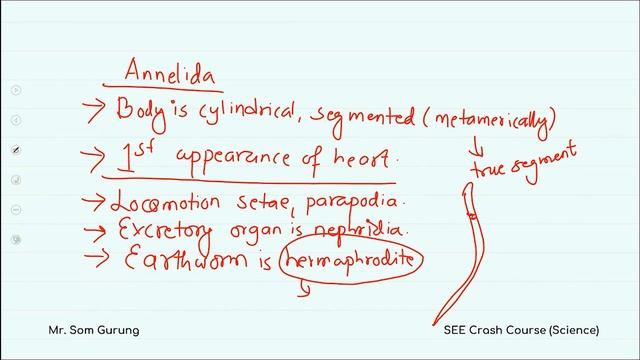 Annelida
→ Body is cylindrical, segmented (metamerically)
→ 1st appearance of heart.
true segment
→ Locomotion setae, parapodia.
→ Excretory organ is nephridia.
→ Earthworm is hermaphrodite
Mr. Som Gurung
SEE Crash Course (Science)